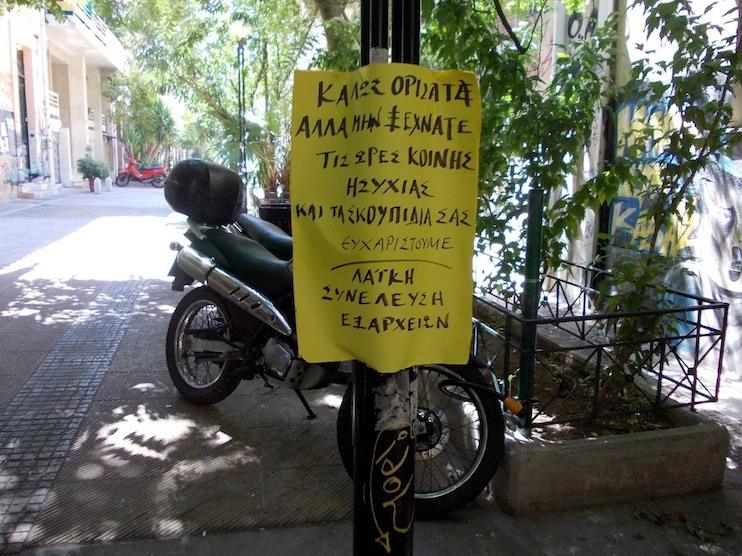 ΚΑΛΩΣ ΟΡΙΣΑΤΕ
ΑΛΛΑ ΜΗΝ ΞΕΧΝΑΤΕ
ΤΙΣ ΩΡΕΣ ΚΟΙΝΗΣ
ΗΣΥΧΙΑΣ
ΚΑΙ ΤΑ ΣΚΟΥΠΙΔΙΑ ΣΑΣ
ΕΥΧΑΡΙΣΤΟΥΜΕ
ΛΑΪΚΗ
ΣΥΝΕΛΕΥΣΗ
ΕΞΑΡΧΕΙΩΝ